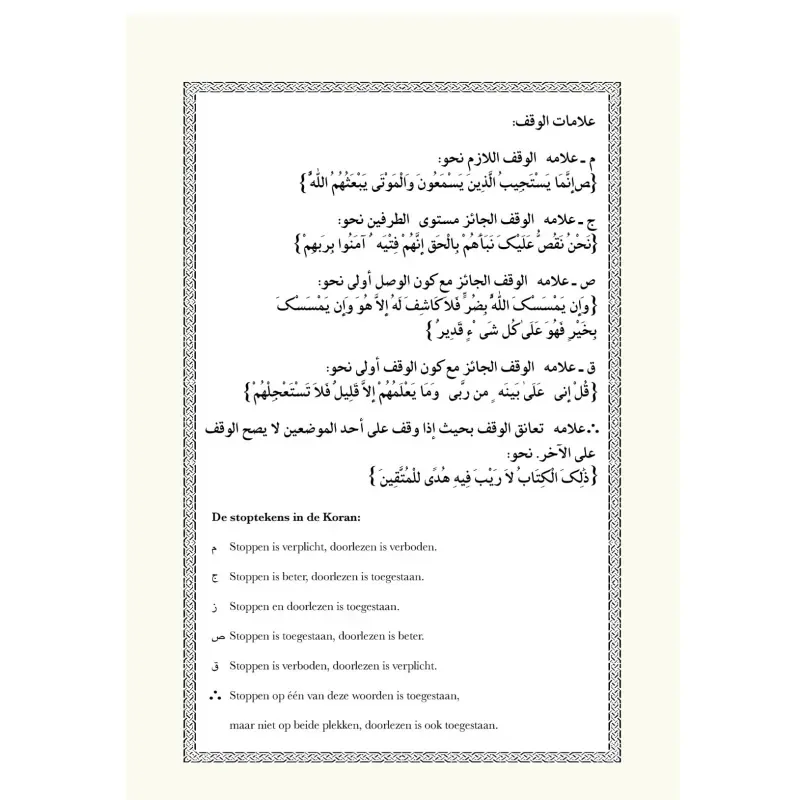 علامات الوقف:
م ـ علامه الوقف اللازم نحو:
{صإنَّمَا يَسْتَجِيبُ الَّذِينَ يَسْمَعُونَ وَالْمَوْتَى يَبْعَثُهُمُ اللهُ}
ج ـ علامه الوقف الجائز مستوى الطرفين نحو:
{نَحْنُ نَقُصُّ عَلَيْكَ نَبَأَهُمْ بِالْحَق إِنَّهُمْ فِتْيَه ُ آمَنُوا بِرَبهِمْ}
ص ـ علامه الوقف الجائز مع كون الوصل أولى نحو:
{وَإن يَمْسَسْكَ اللهُ بِضُرٍّ فَلاَ كَاشِفَ لَهُ إلاَّ هُوَ وَإن يَمْسَسْكَ
بِخَيْرٍ فَهُوَ عَلَىٰ كُل شَىْءٍ قَدِيرُ}
ق ـ علامه الوقف الجائز مع كون الوقف أولى نحو:
{قُلْ إنى عَلَىٰ بَينَه ٍ من رَّبى وَمَا يَعْلَمُهُمْ إلاَّ قَلِيلُ فَلاَ تَسْتَعْجِلْهُمْ}
∴علامه تعانق الوقف بحيث إذا وقف على أحد الموضعين لا يصح الوقف
على الآخر. نحو:
{ذَٰلِكَ الْكِتَابُ لاَ رَيْبَ فِيهِ هُدًى للْمُتَّقِينَ}
De stoptekens in de Koran:
م Stoppen is verplicht, doorlezen is verboden.
ج Stoppen is beter, doorlezen is toegestaan.
ز Stoppen en doorlezen is toegestaan.
ص Stoppen is toegestaan, doorlezen is beter.
ق Stoppen is verboden, doorlezen is verplicht.
∴ Stoppen op één van deze woorden is toegestaan,
maar niet op beide plekken, doorlezen is ook toegestaan.